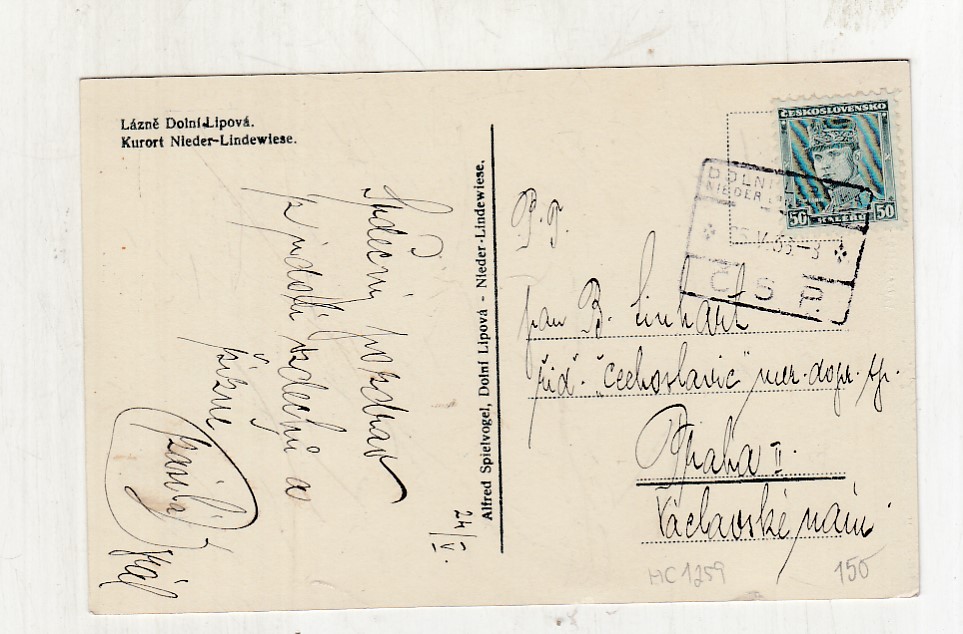 Lázně Dolní Lipová.
Kurort Nieder-Lindewiese.
Srdečný pozdrav
z
a
24/V.
Alfred Spielvogel, Dolní Lipová - Nieder-Lindewiese.
ČESKOSLOVENSKO
50 HALÉŘŮ 50
DOLNI
NIEDER
ČSP.
P.T.
pan B. Linhart
řid. "Čechoslavie" mez. dopr. sp.
Praha II.
Václavské nám.
HC1259
150